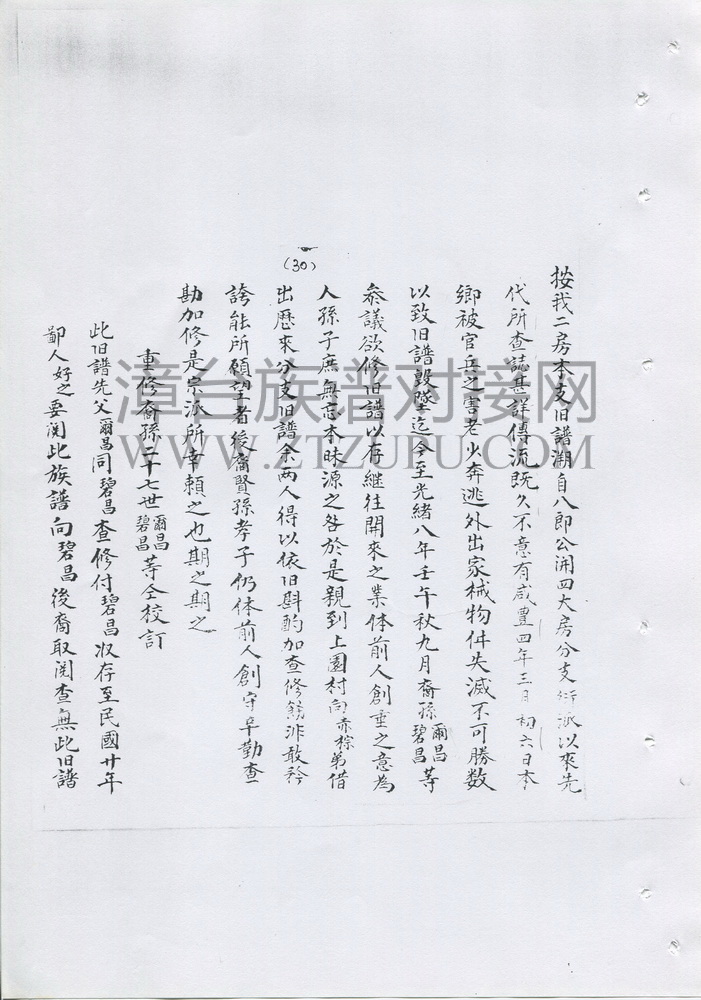 (30)
按我二房本支旧譜溯自八郎公開四大房分支衍派以來先
代所查誌甚詳傳流既久不意有咸豊四年三月初六日本
鄉被官兵之害老少奔逃外出家械物件失滅不可勝数
以致旧譜毀墜迄今至光緒八年壬午秋九月裔孫爾昌碧昌等
叅議欲修旧譜以存継往開來之業体前人創垂之意為
人孫子庶無忘本昧源之咎於是親到上園村向赤棕弟借
出歷來分支旧譜余两人得以依旧斟酌加查修餙非敢矜
誇能所願望者後裔賢孫孝子仍体前人創守辛勤查
勘加修是宗派所幸賴之也期之期之
重修裔孫二十七世爾昌碧昌等仝校訂
此旧譜先父爾昌同碧昌查修付碧昌收存至民國廿年
鄙人好之要閲此族譜向碧昌後裔取閲查無此旧譜
漳台族谱对接网
WWW.ZTZUPU.COM